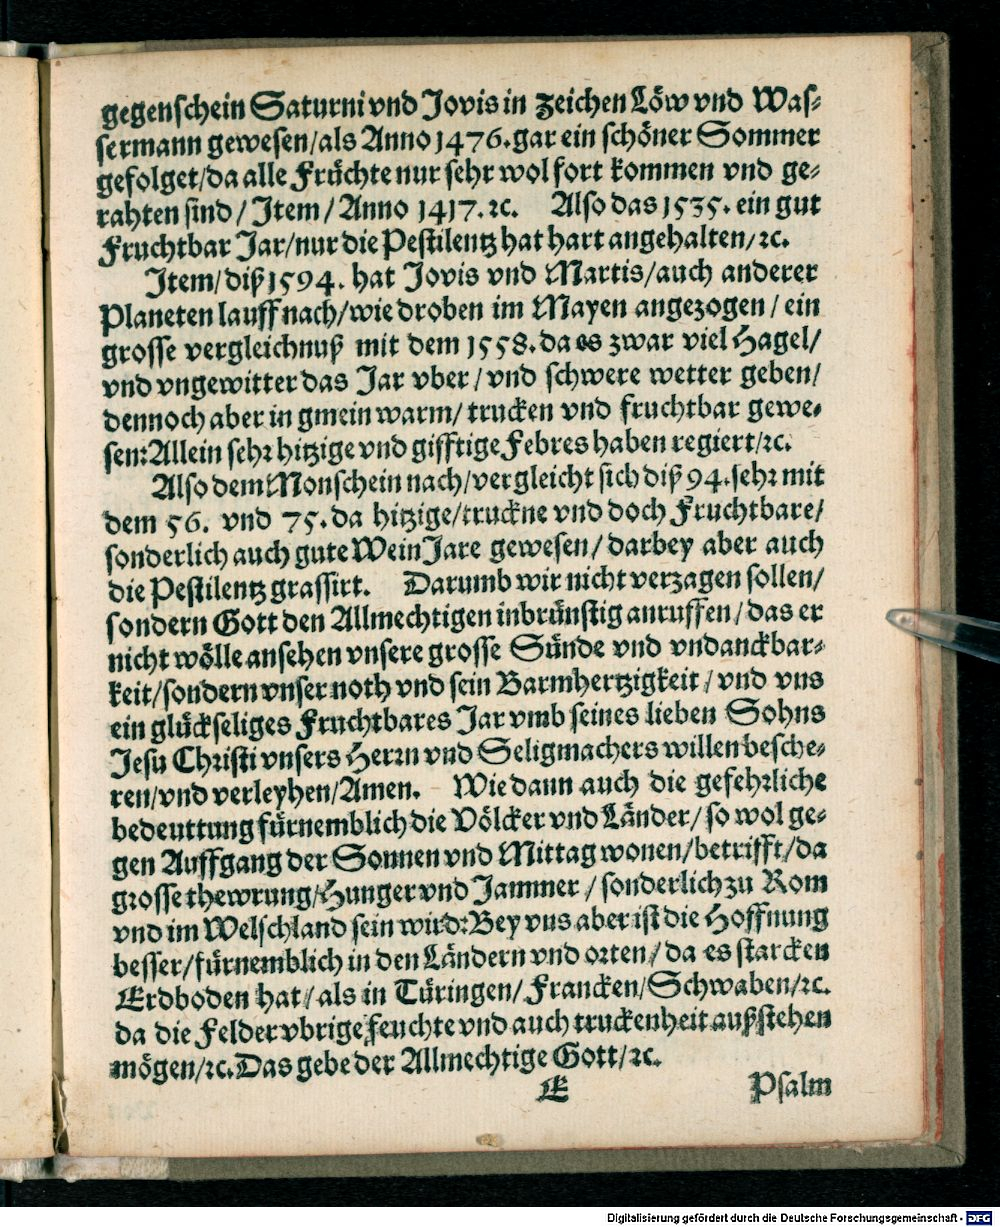 gegenschein Saturni vnd Jovis in zeichen Löw vnd Was-
sermann gewesen/als Anno 1476. gar ein schöner Sommer
gefolget/da alle Früchte nur sehr wol fort kommen vnd ge-
rahten sind/ Item/ Anno 1417. ꝛc. Also das 1535. ein gut
Fruchtbar Jar/nur die Pestilentz hat hart angehalten/ꝛc.
Item/diß 1594. hat Jovis vnd Martis/auch anderer
Planeten lauff nach/wie droben im Mayen angezogen/ ein
grosse vergleichnuß mit dem 1558. da es zwar viel Hagel/
vnd vngewitter das Jar vber/ vnd schwere wetter geben/
dennoch aber in gmein warm/ trucken vnd fruchtbar gewe-
sen: Allein sehr hitzige vnd gifftige Febres haben regiert/ꝛc.
Also dem Monschein nach/vergleicht sich diß 94. sehr mit
dem 56. vnd 75. da hitzige/truckne vnd doch Fruchtbare/
sonderlich auch gute Wein Jare gewesen/ darbey aber auch
die Pestilentz grassirt. Darumb wir nicht verzagen sollen/
sondern Gott den Allmechtigen inbrünstig anruffen/ das er
nicht wölle ansehen vnsere grosse Sünde vnd vndanckbar-
keit/sondern vnser noth vnd sein Barmhertzigkeit/ vnd vns
ein glückseliges Fruchtbares Jar vmb seines lieben Sohns
Jesu Christi vnsers Herrn vnd Seligmachers willen besche-
ren/vnd verleyhen/Amen. Wie dann auch die gefehrliche
bedeuttung fürnemblich die Völcker vnd Länder/ so wol ge-
gen Auffgang der Sonnen vnd Mittag wonen/betrifft/da
grosse thewrung/Hunger vnd Jammer/ sonderlich zu Rom
vnd im Welschland sein wird: Bey vns aber ist die Hoffnung
besser/fürnemblich in den Ländern vnd orten/ da es starcken
Erdboden hat/ als in Türingen/ Francken/Schwaben/ꝛc.
da die Felder vbrige feuchte vnd auch truckenheit außstehen
mögen/ꝛc. Das gebe der Allmechtige Gott/ꝛc.
E Psalm
Digitalisierung gefördert durch die Deutsche Forschungsgemeinschaft - DFG